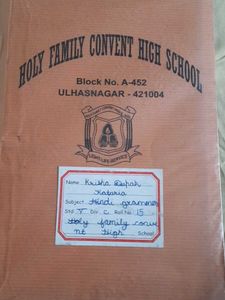 HOLY FAMILY CONVENT HIGH SCHOOL
Block No. A-452
ULHASNAGAR - 421004
Name Krisha Deepak
Kataria
Subject Hindi grammar
Std V Div. C Roll No 15
Holy family conve
nt High School